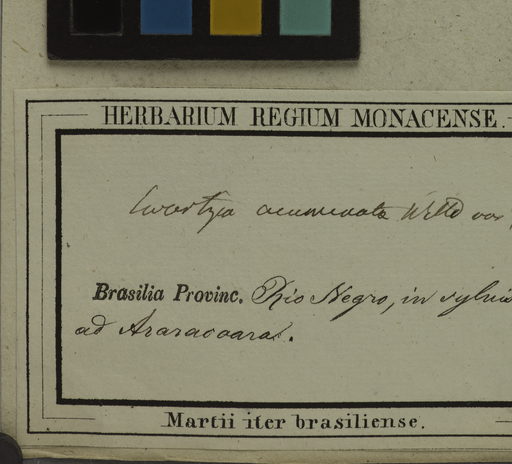 HERBARIUM REGIUM MONACENSE.
Swartzia acuminata Willd var
Brasilia Provinc. Rio Negro, in sylvis
ad Araracoara.
Martii iter brasiliense.